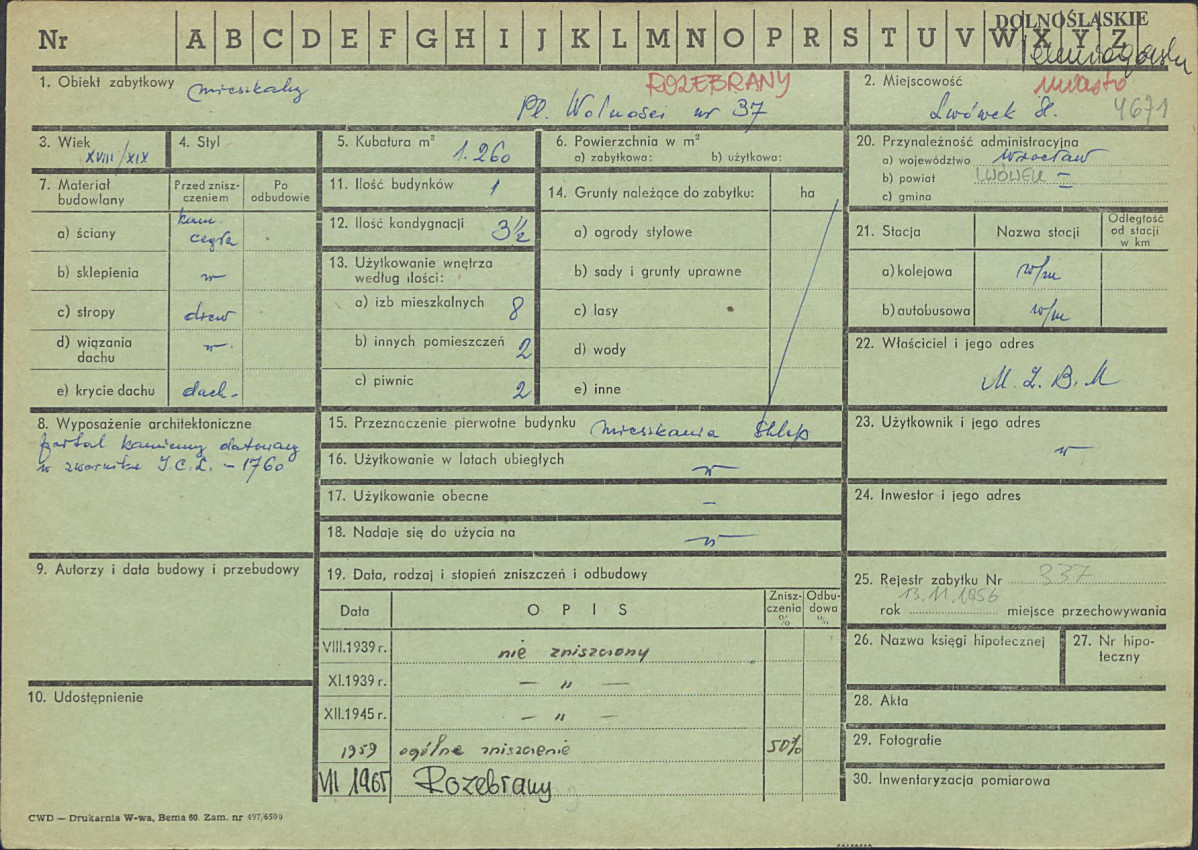 DOLNOŚLĄSKIE
Nr A B C D E F G H I J K L M N O P R S T U V W X Y Z
1. Obiekt zabytkowy mieszkalny ROZEBRANY
Pl. Wolności nr 37
2. Miejscowość miasto
Lwówek Śl. 4671
3. Wiek XVIII/XIX
4. Styl
5. Kubatura m³ 1.260
6. Powierzchnia w m²
a) zabytkowa: b) użytkowa:
20. Przynależność administracyjna
a) województwo Wrocław
b) powiat LWÓWEK
c) gmina
7. Materiał budowlany
Przed znisz-
czeniem
Po
odbudowie
a) ściany kam. cegła
b) sklepienia "
c) stropy drew
d) wiązania
dachu "
e) krycie dachu dach.
11. Ilość budynków 1
12. Ilość kondygnacji 3½
13. Użytkowanie wnętrza
według ilości:
a) izb mieszkalnych 8
b) innych pomieszczeń 2
c) piwnic 2
14. Grunty należące do zabytku: ha
a) ogrody stylowe
b) sady i grunty uprawne
c) lasy
d) wody
e) inne
21. Stacja Nazwa stacji
Odległość
od stacji
w km
a) kolejowa w/m
b) autobusowa w/m
22. Właściciel i jego adres
M. Z. B. M
8. Wyposażenie architektoniczne
portal kamienny datowany
w zworniku I.C.L. – 1760
15. Przeznaczenie pierwotne budynku mieszkania sklep
16. Użytkowanie w latach ubiegłych "
17. Użytkowanie obecne –
18. Nadaje się do użycia na – " –
23. Użytkownik i jego adres
"
24. Inwestor i jego adres
9. Autorzy i data budowy i przebudowy
10. Udostępnienie
19. Data, rodzaj i stopień zniszczeń i odbudowy
Data OPIS
Znisz-
czenia
%
Odbu-
dowa
%
VIII.1939 r. nie zniszczony
XI.1939 r. – " –
XII.1945 r. – " –
1959 ogólne zniszczenie 50%
VII 1965 Rozebrany
25. Rejestr zabytku Nr 337
13.11.1956
rok miejsce przechowywania
26. Nazwa księgi hipotecznej
27. Nr hipo-
teczny
28. Akta
29. Fotografie
30. Inwentaryzacja pomiarowa
CWD — Drukarnia W-wa, Bema 60. Zam. nr 497/6500